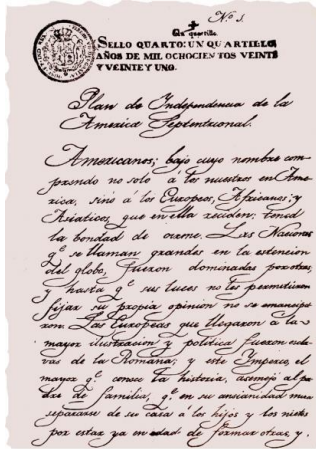 Nº 1.
Un quartillo
SELLO QUARTO: UN QUARTILLO,
AÑOS DE MIL OCHOCIENTOS VEINTE
Y VEINTE Y UNO.
Plan de Independencia de la
America Septentrional.
Americanos; bajo cuyo nombre com-
prendo no solo á los nuestros en Ame-
rica, sinó á los Europeos, Africanos; y
Asiaticos, que en ella reciden: tened
la bondad de oirme. Las Naciones
qᵉ se llaman grandes en la estencion
del globo, fueron dominadas por otras;
y hasta qᵉ sus luces no les permitieron
fijar su propia opinion no se emancipa-
ron. Las Europeas que llegaron á la
mayor ilustracion y política fueron escla-
vas de la Romana; y este Imperio, el
mayor qᵉ conoce la historia, asemejó al pa-
dre de familia, qᵉ en su ancianidad mira
separarse de su casa á los hijos y los nietos
por estar ya en edad de formar otras, y